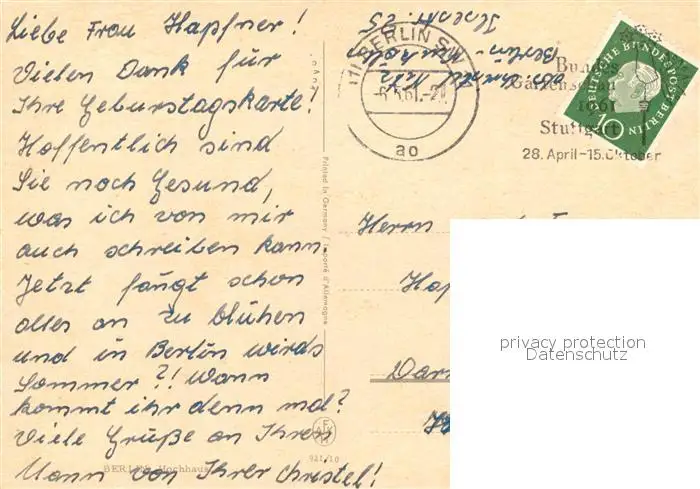 Liebe Frau Hapfner!
Vielen Dank für
Ihre Geburtstagskarte!
Hoffentlich sind
Sie noch Gesund,
was ich von mir
auch schreiben kann.
Jetzt fängt schon
alles an zu blühen
und in Berlin wirds
Sommer?! Wann
kommt ihr denn mal?
Viele Grüße an Ihren
Mann von Ihrer Christel!
BERLIN Hochhaus
921/10
Printed in Germany / Importé d'Allemagne
BERLIN SW
-6.5.61.-21
ao
Berlin-
Bundes
Gartenschau
1961
Stuttgart
28. April-15.Oktober
DEUTSCHE BUNDESPOST BERLIN
10
Herrn
Hap
Dar
privacy protection
Datenschutz